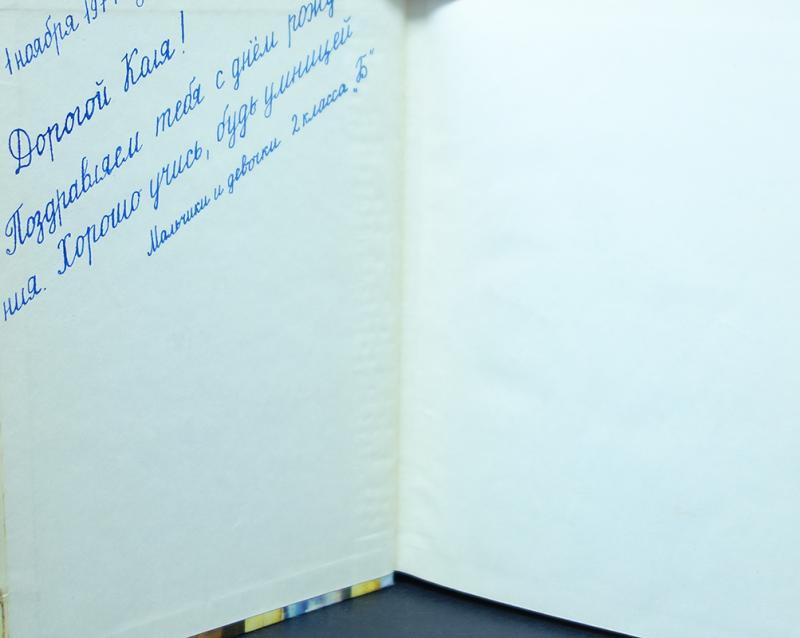 1 ноября
Дорогой Коля!
Поздравляем тебя с днём рожд
ния. Хорошо учись, будь умницей
Мальчики и девочки 2 класса „Б“